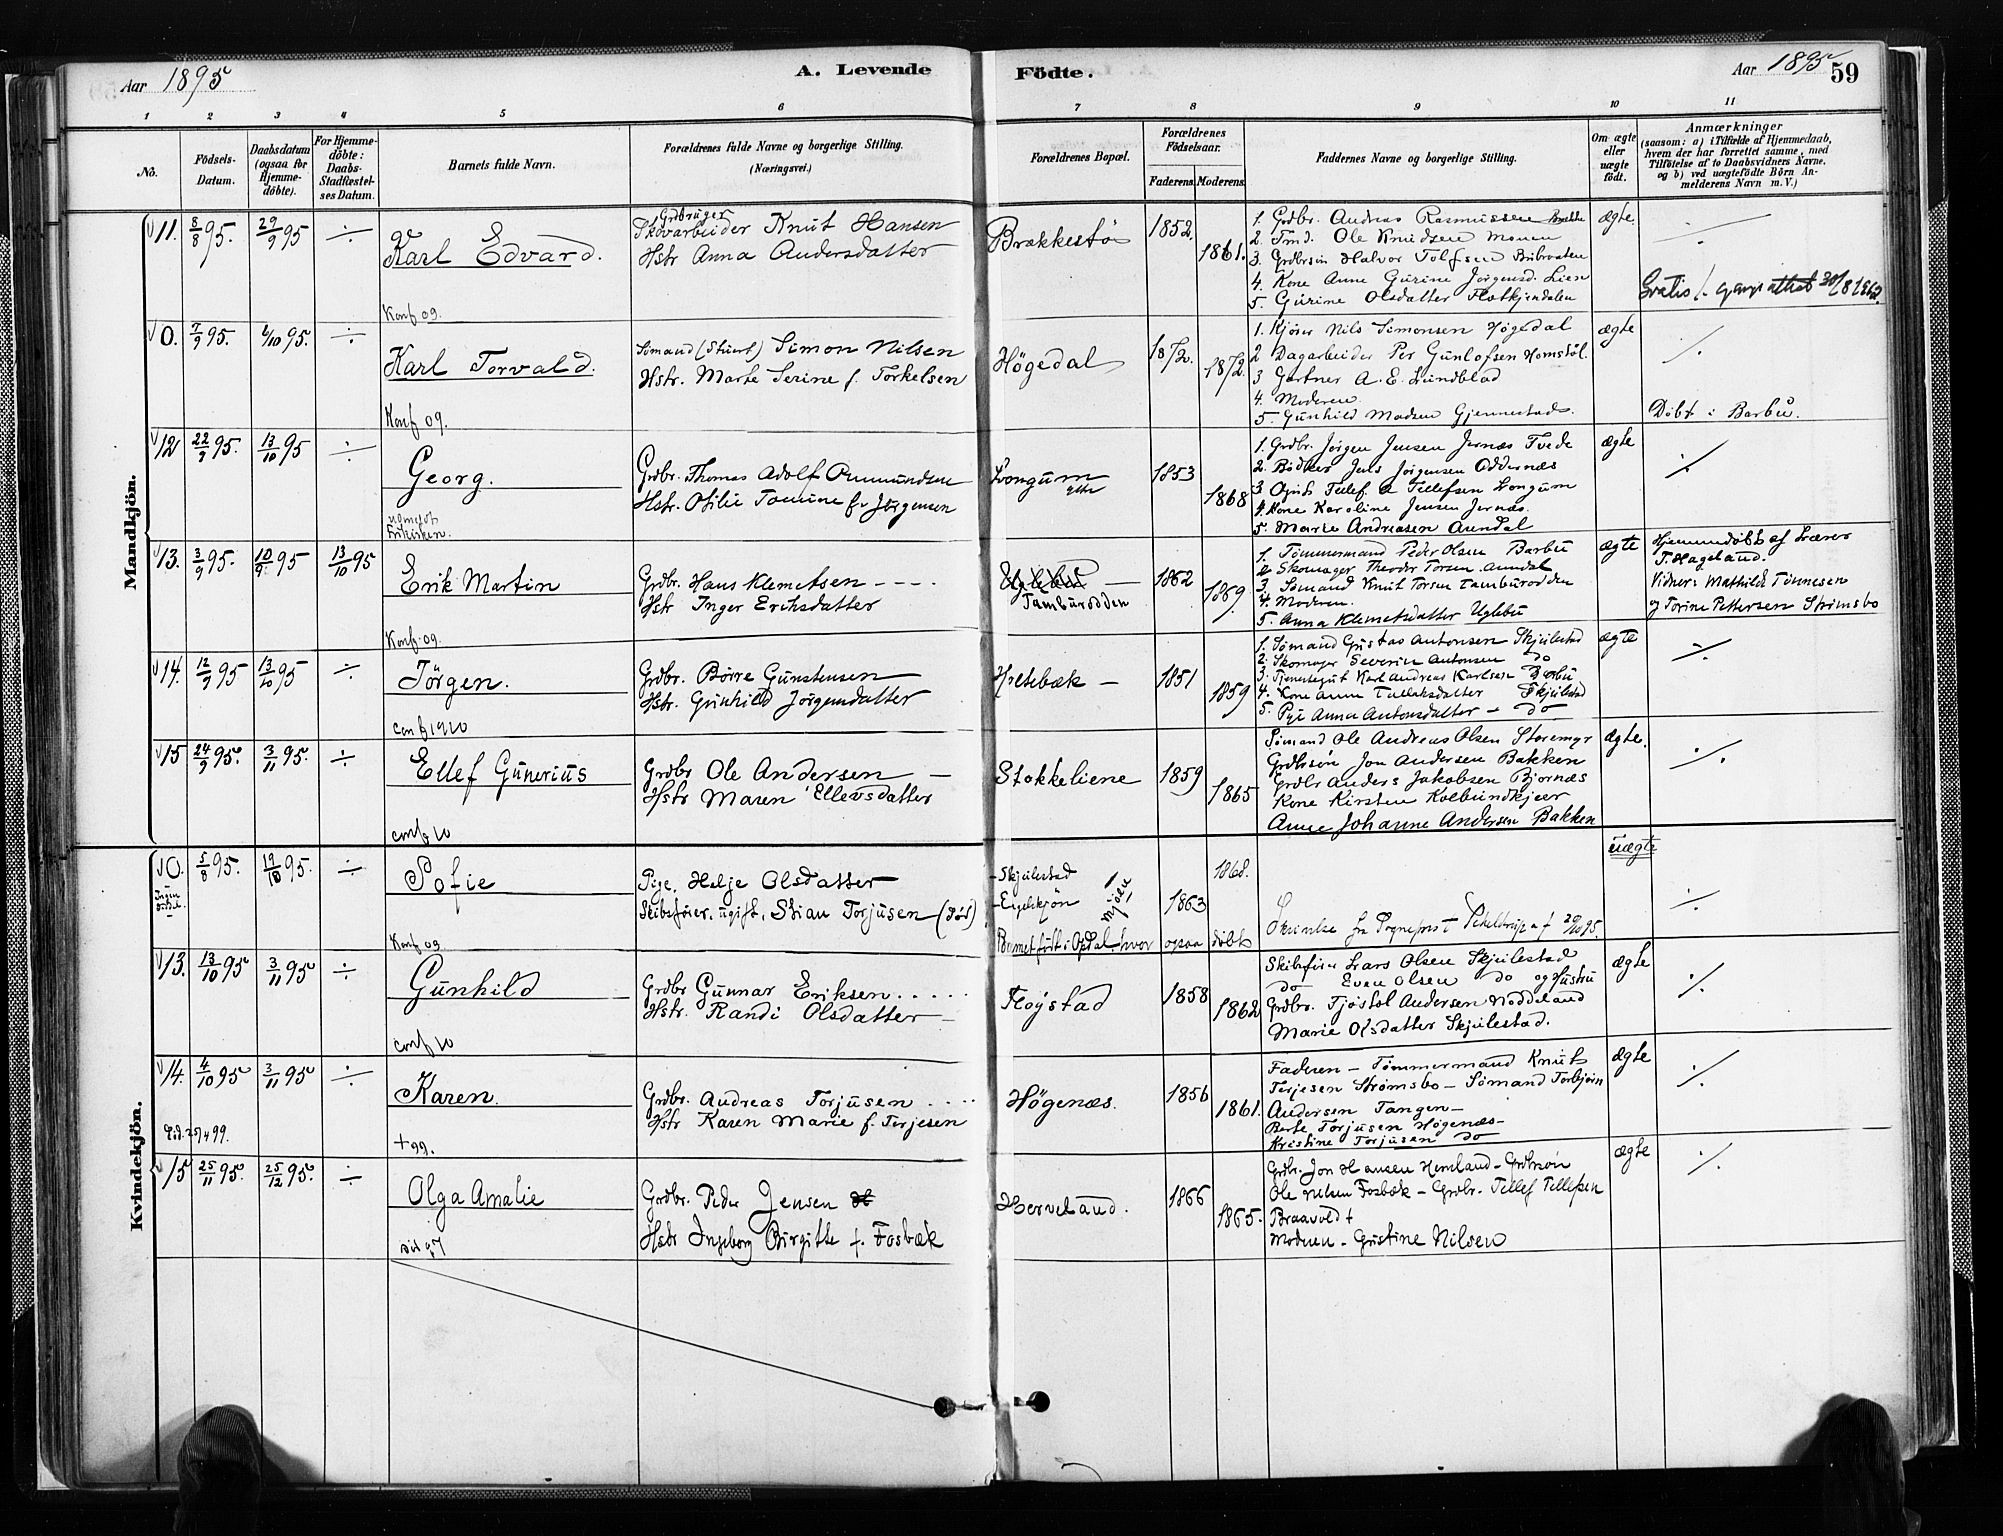 Aar 1895
A. Levende
Födte.
Aar 1895
59
1 2 3 4 5 6 7 8 9 10 11
No.
Födsels-Datum.
Daabsdatum (ogsaa for Hjemme-döbte).
For Hjemme-döbte: Daabs-Stadfæstel-ses Datum.
Barnets fulde Navn.
Forældrenes fulde Navne og borgerlige Stilling. (Næringsvei.)
Forældrenes Bopæl.
Forældrenes Födselsaar.
Faderens. Moderens.
Faddernes Navne og borgerlige Stilling.
Om ægte eller uægte födt.
Anmærkninger
(saasom: a) i Tilfælde af Hjemmedaab, hvem der har forrettet samme, med Tilföielse af to Daabsvidners Navne, og b) ved uægtefödte Börn An-melderens Navn m. V.)
Mandkjön.
11. 8/8 95. 29/9 95 ÷
Karl Edvard.
Konf 09.
Grdbruger
Skovarbeider Knut Hansen
Hstr Anna Andersdatter
Brækkestø 1852. 1861.
1. Grdbr. Andreas Rasmussen
2. Tmd. Ole Knudsen Monen
3. Grdbrsøn Halvor Tolfsen
4. Kone Anne Gurine Jørgensd. Lien
5. Gurine Olsdatter
ægte.
Gratis
0. 7/9 95. 6/10 95. ÷
Karl Torvald.
Konf 09.
Sømand (Stuert) Simon Nilsen
Hstr. Marte Serine f. Torkelsen
Högedal 1872. 1872.
1. Kjører Nils Simonsen Högedal
2 Dagarbeider Per Gunlofsen Homstøl.
3 Gartner A. E. Lundblad
4. Moderen
5. Gunhild Madsen Gjennestad.
ægte
Döbt i Barbu.
12 22/9 95. 13/10 95 ÷
Georg.
Grdbr. Thomas Adolf Ommundsen
Hstr. Otilie Tomine f. Jørgensen
Longum 1853 1868
1. Grdbr. Jørgen Jensen Jernæs Tvede
2. Bødker Jens Jörgensen Oddernæs
3 Tellef. A Tellefsen Longum
4. Kone Karoline Jensen Jernæs.
5. Marie Andreasen Arendal
ægte
13. 3/9 95. 10/9 95 13/10 95
Erik Martin
Konf. 09.
Grdbr. Hans Klemetsen
Hstr Inger Eriksdatter
Uglebu
Tamburodden 1862 1869.
1. Tømmermand Peder Olsen Barbu
2 Skomager Theodor Torsen Arendal
3. Sømand Knut Torsen Tamburodden
4. Moderen.
5. Anna Klemetsdatter Uglebu
ægte
Hjemmedöbt af Lærer
T. Hageland.
Vidner: Mathilde Tönnesen
og Torine Pettersen Strömsbo
14. 12/9 95 13/10 95 ÷
Jörgen.
conf 1910
Grdbr. Börre Gunstensen
Hstr. Gunhild Jörgensdatter
Hvetebæk 1851 1859
1. Sømand Gustav Antonsen Skjulestad
2. Skomager Severin Antonsen do
3. Tjenestegut Karl Andreas Karlsen Barbu
4. Kone Anne Tellaksdatter Skjulestad
5. Pige Anna Antonsdatter do
ægte
15 24/9 95. 3/11 95. ÷
Ellef Gunerius
conf 10
Grdbr Ole Andersen
Hstr Maren Ellevsdatter
Stokkeliene 1859 1865
Sömand Ole Andreas Olsen Storemyr
Grdbrsön Jon Andersen Bakken
Grdbr Anders Jakobsen Bjornæs
Kone Kirsten Kolbundkjær
Anne Johanne Andersen Bakken
ægte.
Kvindekjön.
0. 5/8 95. 19/10 95. ÷
Sofie
Konf 09
Pige. Helje Olsdatter
Skibsfører, ugift, Stian Torjusen (død)
Skjulestad
Engelskjøn
Barnet født i Opdal, hvor ogsaa døbt
1863 1868.
Skrivelse fra Sogneprest af 20/10 95.
uægte
13. 13/10 95 3/11 95 ÷
Gunhild
conf 10
Grdbr Gunnar Eriksen
Hstr. Randi Olsdatter
Flöystad 1858 1862
Skibsfører Lars Olsen Skjulestad
do Even Olsen do og Hustru
Grdbr. Tjöstol Andersen Noddeland
Marie Olsdatter Skjulestad.
ægte
14. 4/10 95 3/11 95 ÷
Karen.
+ 99.
Grdbr. Andreas Torjusen
Hstr Karen Marie f. Terjesen
Högenæs. 1856 1861.
Faderen – Tømmermand Knut
Terjesen Strömsbo – Sömand Torbjörn
Andersen Tangen –
Berte Torjusen Högenæs –
Kristine Torjusen do
ægte
15 25/11 95. 25/12 95. ÷
Olga Amalie
Grdbr. Peder Jensen
Hstr Ingeborg Birgitte f. Fosbæk
Herveland. 1866 1865.
Grdbr. Jon Hansen – Grdbrsön
Ole Nilsen Fosbæk – Grdbr. Tellef Tellefsen
Braavold +
Moderen – Gustine Nilsen
ægte